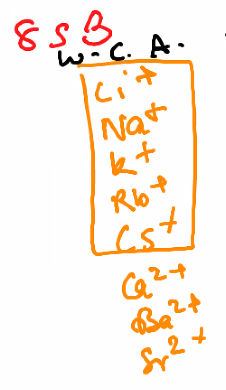 8 S B
W.C.A.
Li⁺
Na⁺
K⁺
Rb⁺
Cs⁺
Ca²⁺
Ba²⁺
Sr²⁺